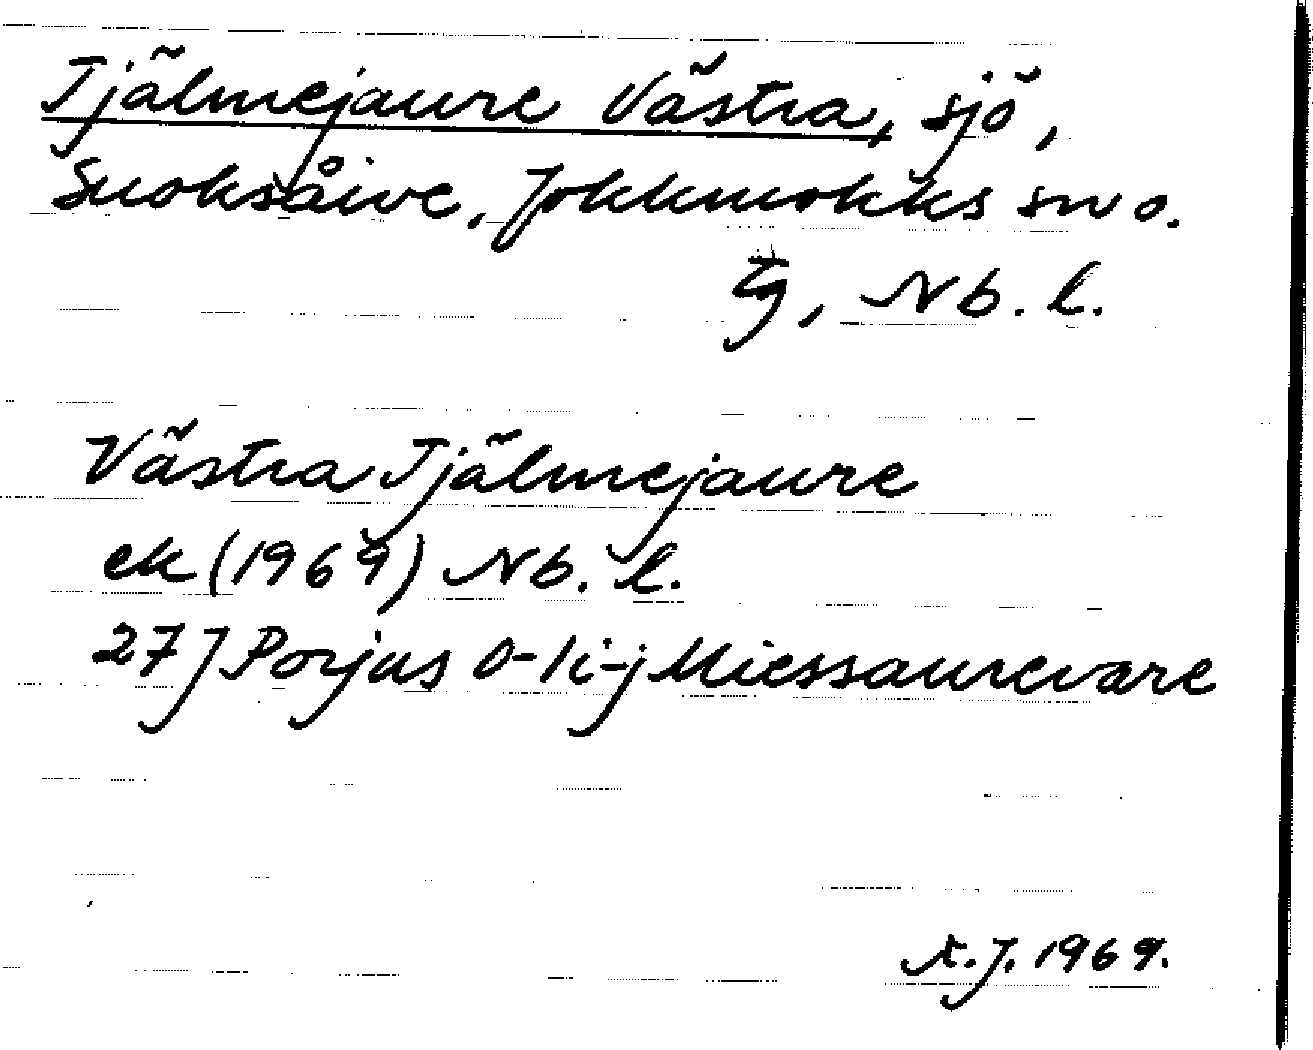 Tjälmejaure Västra, sjö,
Suoksåive, Jokkmokks sn o.
tg, Nb. l.
Västra Tjälmejaure
ek (1969) Nb. l.
27 J Porjus 0-1i-j Miessaurevare
X.J. 1969.